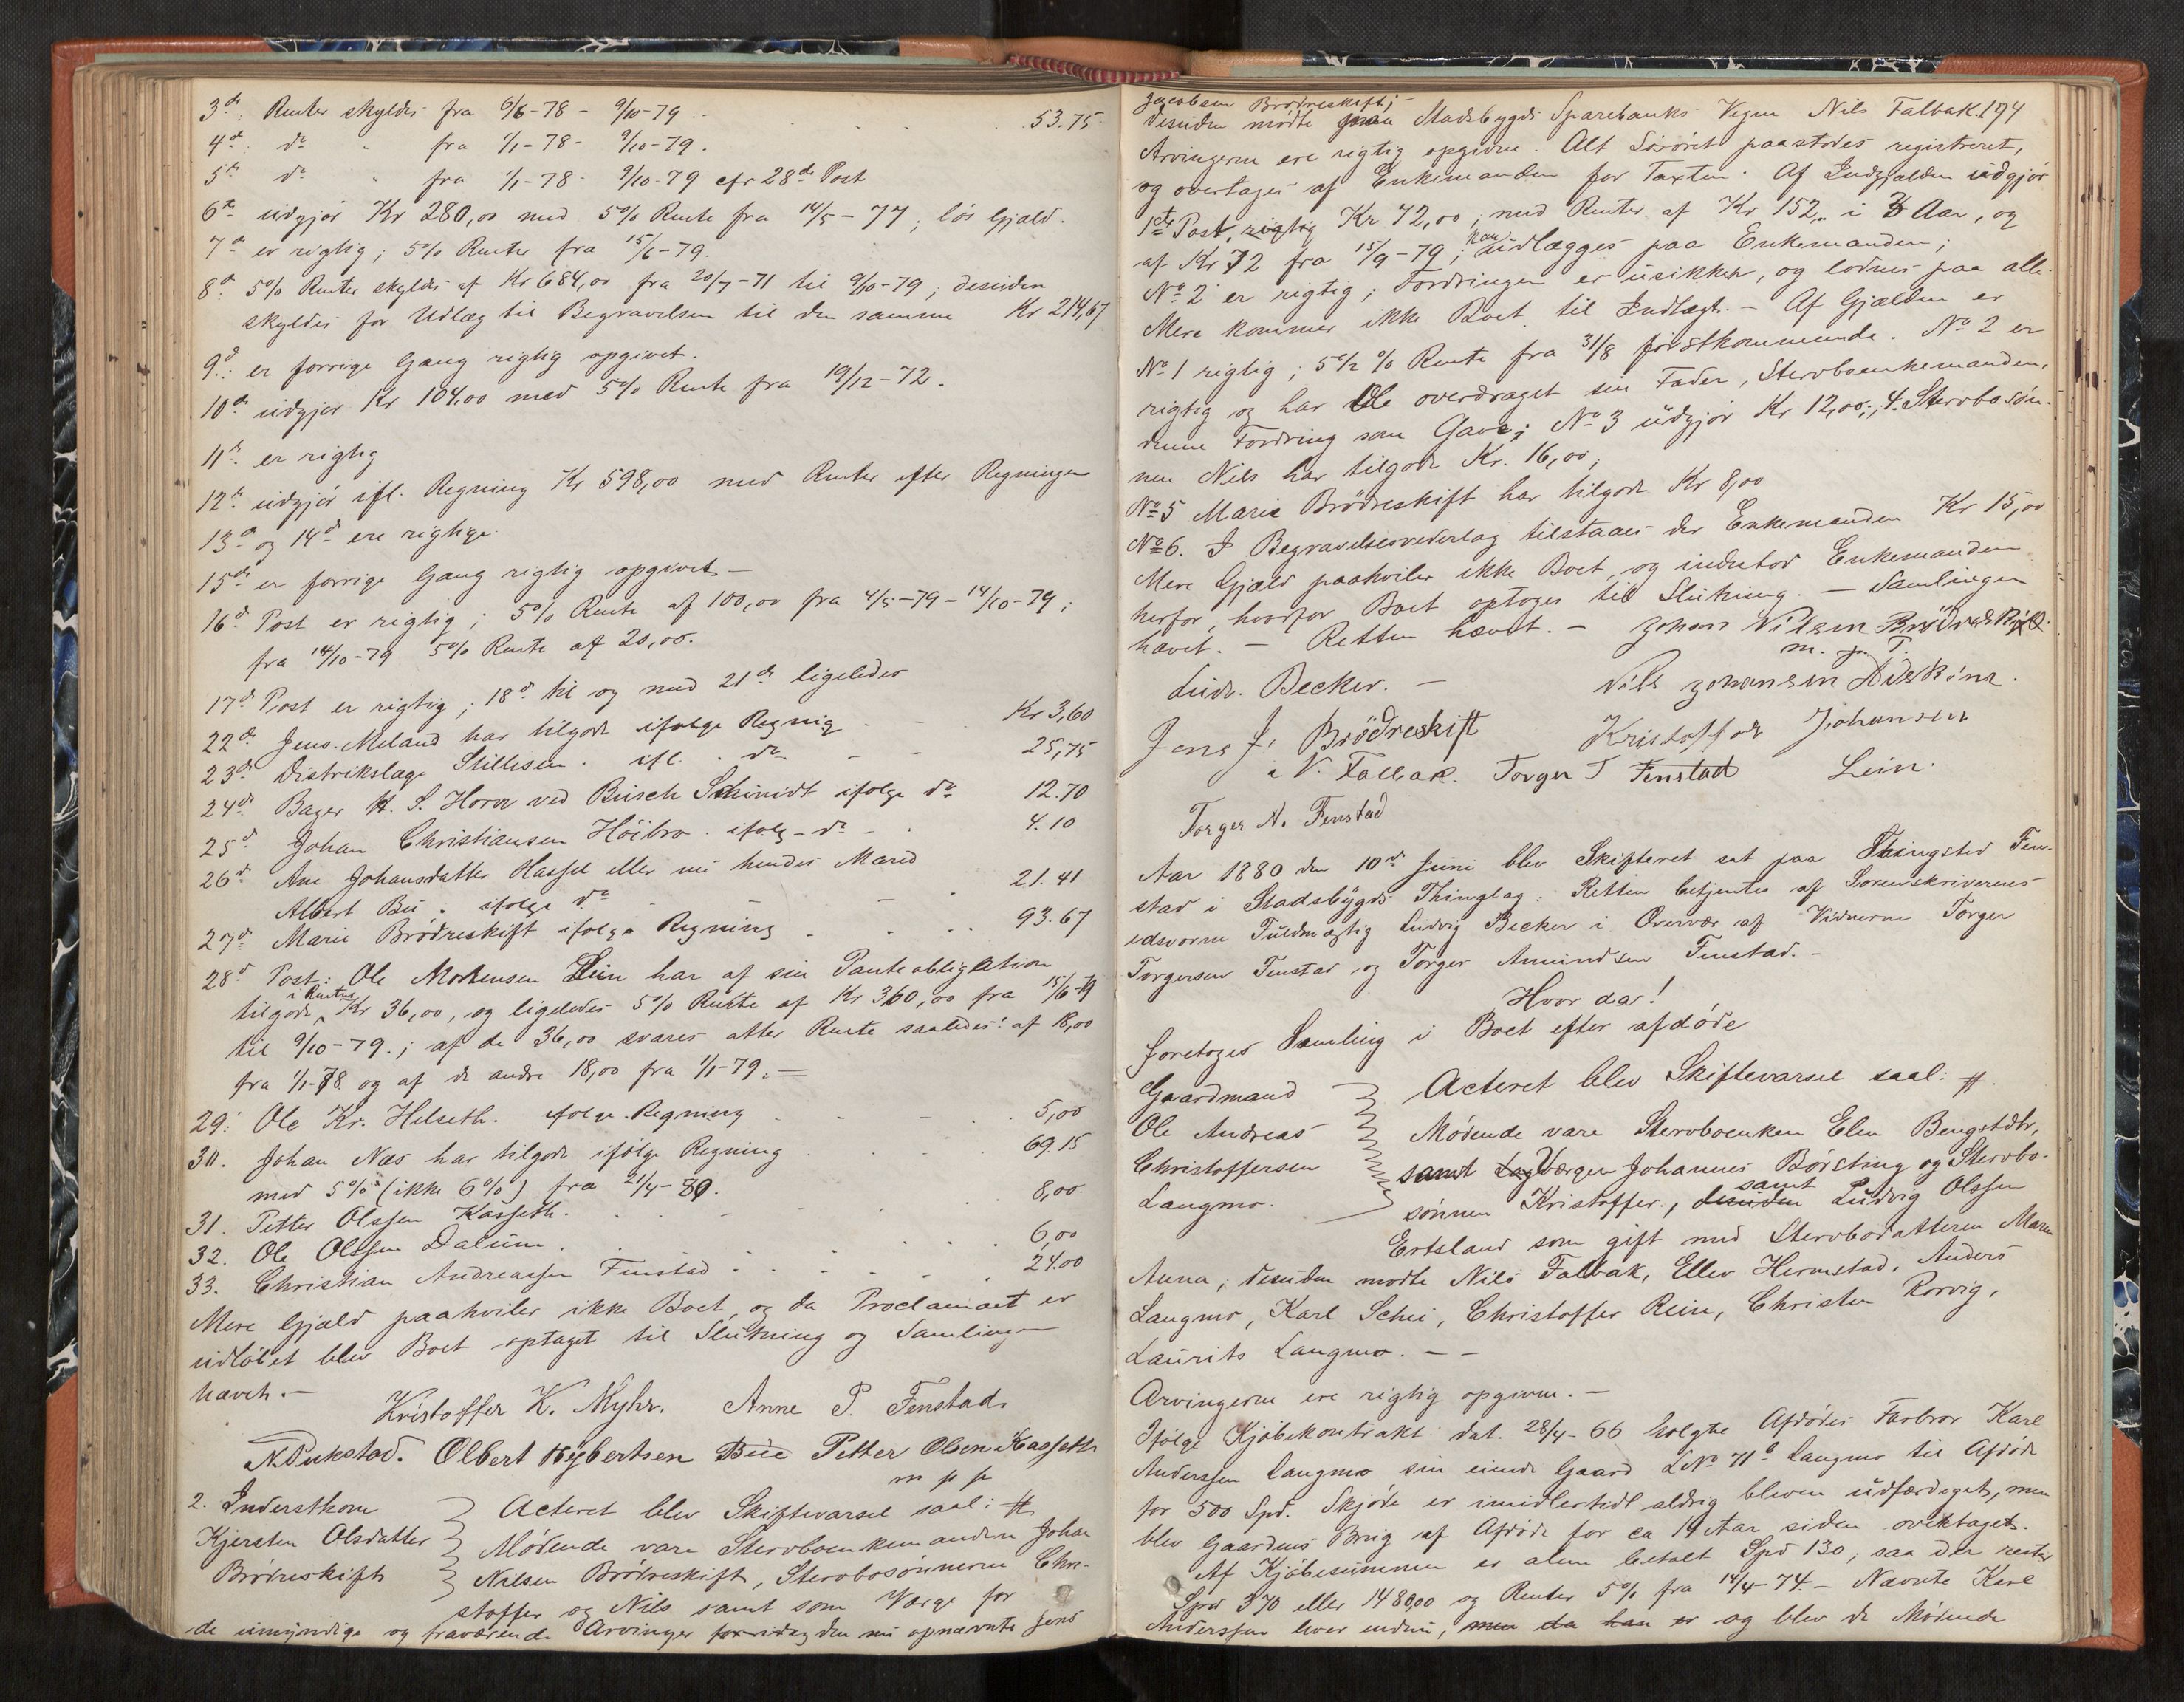 3die Renter skyldes fra 6/6-78 - 9/10-79 .. 53.75
4de do " fra 1/1-78 - 9/10-79.
5te do " fra 1/1-78 - 9/10-79 cfr 28de Post
6te udgjør Kr 280,00 med 5% Rente fra 14/5-77; løs Gjæld.
7de er rigtig; 5% Renter fra 15/6-79.
8de 5% Renter skyldes af Kr 684,00 fra 20/7-71 til 9/10-79; desuden
skyldes for Udlæg til Begravelsen til den samme Kr 214,67
9de: er forrige Gang rigtig opgivet.
10de udgjør Kr 104,00 med 5% Rente fra 19/12-72.
11te er rigtig
12te udgjør ifl. Regning Kr 598,00 med Renter efter Regningen
13de og 14de ere rigtige.
15de er forrige Gang rigtig opgivet -
16de Post er rigtig; 5% Rente af 100,00 fra 4/5-79 - 14/10-79;
fra 14/10-79 5% Rente af 20,00.
17de Post er rigtig; 18de til og med 21de ligeledes
22de Jens Meland har tilgode ifølge Regnig - - Kr 3,60
23de Distrikslæge Stillesen. ifl. do - - 25,75
24de Bager H. S. Horer ved Busch Schmidt ifølge do 12.70
25de Johan Christiansen Høibro. ifølg- do - . 4.10
26de Ane Johansdatter Hassel eller nu hendes Mand
Albert Bu. ifølge do - - - . 21.41
27de Marie Brødreskift ifølge Regning . . . . 93.67
28de Post: Ole Mortensen Lein har af sin Panteobligation
tilgode i Renter Kr 36,00, og ligeledes 5% Rente af Kr 360,00 fra 15/6-79
til 9/10-79.; af de 36,00 svares atter Rente saaledes: af 18,00
fra 1/1-78 og af de andre 18,00 fra 1/1-79. -
29: Ole Kr. Helseth. ifølge Regning . . - . 5,00
30. Johan Næs har tilgode ifølge Regning . . . . 69.15
med 5% (ikke 6%) fra 21/4-80.
31. Petter Olssen Kasseth. . . . . . . 8,00
32. Ole Olssen Dalum . . . . . . . 6,00
33. Christian Andreassen Finstad . . . . . . 24.00
Mere Gjæld paahviler ikke Boet, og da Proclamaet er
udløbet blev Boet optaget til Slutning og Samlingen
hævet. -
Kristoffer K. Myhr. Anne P. Fenstad
N. Pukstad. Olbert Hybertsen Bue Petter Olsen Kasseth
m p p
2. Inderstkone Acteret blev Skiftevarsel saal: #
Kjersten Olsdatter Mødende vare Stervboenkemanden Johan
Brødreskift Nilsen Brødreskift, Stervbosønnerne Chri-
stoffer og Nils samt som Værge for
de umyndige og fraværende Arvinger for idag den nu opnævnte Jens
Jacobsen Brødreskift;
desuden mødte paa Stadsbygds Sparebanks Vegne Nils Falbak. 174
Arvingerne ere rigtig opgivne. Alt Løsøret paastodes registreret,
og overtages af Enkemanden for Taxten. Af Indgjælden udgjør
1ste Post, rigtig Kr 72,00; med Renter af Kr 152,, i 3 Aar, og
af Kr 72 fra 15/9-79; kan udlægges paa Enkemanden;
No 2 er rigtig; Fordringen er usikker, og loddnes paa alle.
Mere kommer ikke Boet til Indtægt. - Af Gjælden er
No 1 rigtig; 5 1/2 % Rente fra 31/8 førstkommende. No 2 er
rigtig og har Ole overdraget sin Fader, Stervboenkemanden,
denne Fordring som Gave; No 3 udgjør Kr 12,00;, 4. Stervbosøn-
nen Nils har tilgode Kr. 16,00;
No 5 Marie Brødreskift har tilgode Kr 8,00
No 6. I Begravelsesvederlag tilstaaes der Enkemanden Kr 15,00
Mere Gjæld paahviler ikke Boet, og indestod Enkemanden
herfor, hvorfor Boet optoges til Slutning. - Samlingen
hævet. - Retten hævet. - Johan Nilsen Brödreskift
m. p. P.
Ludv. Becker. - Nils Johansen Diskena.
Jens J. Brödreskift Kristoffer Johansen
N. Falbak. Torger T Finstad Lein.
Torger A. Finstad
Aar 1880 den 10de Juni blev Skifteret sat paa Thingsted Fen-
stad i Stadsbygds Thinglag. Retten betjentes af Sorenskriverens
edsvorne Fuldmægtig Ludvig Becker i Overvær af Vidnerne Torger
Torgersen Finstad og Torger Amundsen Finstad. -
Hvor da!
foretoges Samling i Boet efter afdøde
Gaardmand Acteret blev Skiftevarsel saal: #
Ole Andreas Mødende vare Stervboenken Elen Bengtsdtr,
Christoffersen samt Lagværgen Johannes Børsting og Stervbo-
Langmo. sønnen Kristoffer., desuden samt Ludvig Olssen
Ertsland som gift med Stervbodatteren Maren
Anna; desuden mødte Nils Falbak, Ellev Hermstad, Anders
Langmo, Karl Schei, Christoffer Rein, Christen Rørvig,
Laurits Langmo. - -
Arvingerne ere rigtig opgivne. -
Ifølge Kjøbekontrakt dat. 28/4-66 solgte Afdødes Farbror Karl
Anderssen Langmo sin eiende Gaard L No 71b Langmo til Afdøde
for 500 Spd. Skjøde er imidlertidl aldrig bleven udfærdiget, men
blev Gaardens Brug af Afdøde for ca 14 Aar siden overtaget.
Af Kjøbesummen er alene betalt Spd 130; saa der rester
Spd 370 eller 1480,00 og Renter 5% fra 14/4-74. - Nævnte Karl
Anderssen lever endnu, men da han er og blev de Mødende